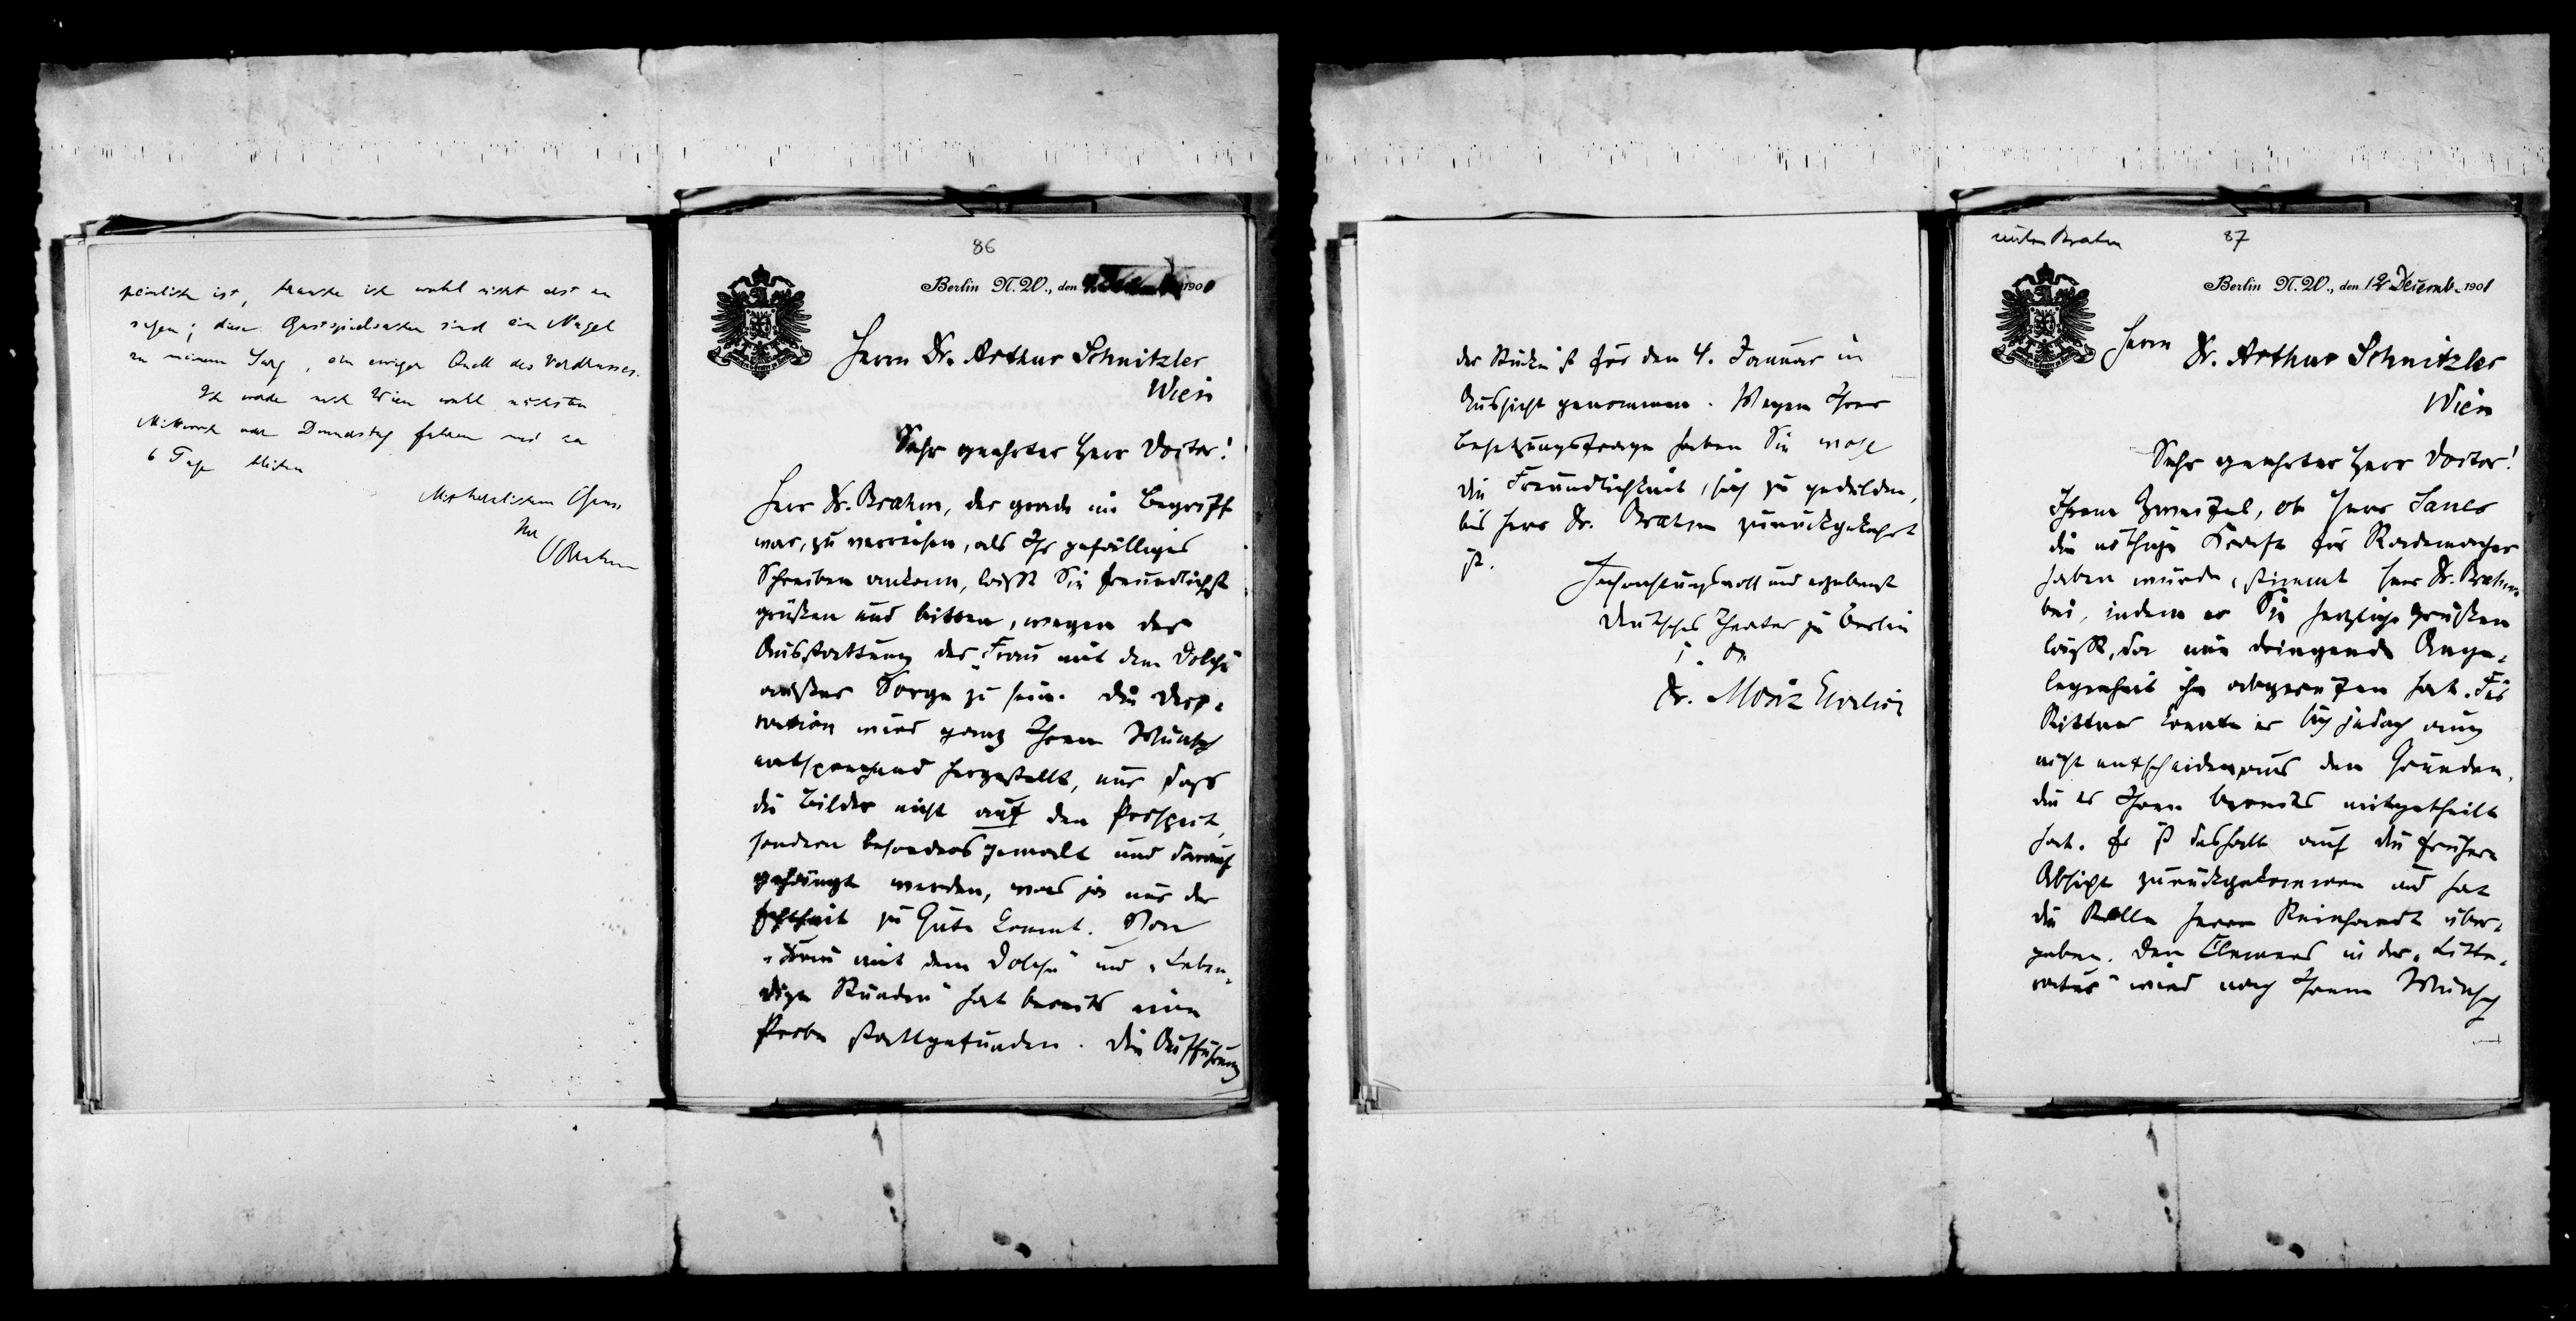 peinlich ist, brauche ich wohl nicht erst zu
sagen; diese Gastspielsachen sind ein Nagel
zu meinem Sarg, ein ewiger Quell des Verdrusses.
Ich werde nach Wien wohl nächsten
Mittwoch oder Donnerstag fahren und ca
6 Tage bleiben
Mit herzlichem Gruss
Ihr
OBrahm
86
Berlin N.W., den 1901
Herrn Dr. Arthur Schnitzler
Wien
Sehr geehrter Herr Doctor!
Herr Dr. Brahm, der grade im Begriff
war, zu verreisen, als Ihr gefälliges
Schreiben ankam, läßt Sie freundlichst
grüßen und bitten, wegen der
Ausstattung der „Frau mit dem Dolche
außer Sorge zu sein. Die Deco-
ration wird ganz Ihrem Wunsch
entsprechend hergestellt, nur dass
die Bilder nicht auf den Prospect,
sondern besonders gemalt und darauf
gehängt werden, was ja nur der
Echtheit zu Gute kommt. Von
„Frau mit dem Dolche" und „Leben-
dige Stunden" hat bereits eine
Probe stattgefunden. Die Aufführung
der Stücke ist für den 4. Januar in
Aussicht genommen. Wegen Ihrer
Besetzungsfrage haben Sie wohl
die Freundlichkeit, sich zu gedulden,
bis Herr Dr. Brahm zurückgekehrt
ist.
Hochachtungsvoll und ergebenst
Deutsches Theater zu Berlin
i. A.
Dr. Moriz Ehrlich
87
Berlin N.W., den 12 Decemb. 1901
Herrn Dr. Arthur Schnitzler
Wien
Sehr geehrter Herr Doctor!
Ihrem Zweifel, ob Herr Sauer
die nöthige Kraft für Rademacher
haben würde, stimmt Herr Dr. Brahm
bei, indem er Sie herzlich grüßen
läßt, da eine dringende Ange-
legenheit ihn abgerufen hat. Für
Rittner konnte er sich jedoch auch
nicht entscheiden aus den Gründen,
die er Ihnen bereits mitgetheilt
hat. Er ist deshalb auf die frühere
Absicht zurückgekommen und hat
die Rolle Herrn Reinhardt über-
geben. Den Clemens in der „Litte-
ratur" wird nach Ihrem Wunsch